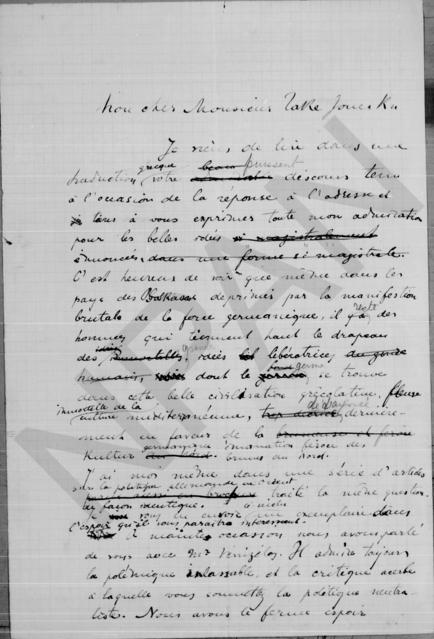 Mon cher Monsieur Take Jonesku
Je viens de lire dans une
traduction grecque votre puissant discours tenu
à l'occasion de la réponse à l'adresse et
je tiens à vous exprimer toute mon admiration
pour les belles idées si magistralement
énoncées dans une forme si magistrale.
C'est heureux de voir que même dans les
pays des Balkans deprimés par la manifestion
brutale de la force germanique, il y a des
hommes qui tiennent haut le drapeau
des idées libératrices du genre
humain, dont le germe se trouve
dans cette belle civilisation grécolatine, fleur
immortelle de la culture méditerranéenne,
en faveur de la
Kultur émanation
brumes du Nord.
J'ai moi même dans une série d'articles
sur la politique allemande en Orient
traité la même question
de façon identique.
vous en envoie un exemplaire dans
l'espoir qu'il vous paraîtra intéressant.
A mainte occasion nous avons parlé
de vous avec Mr Venizélos. Il admire toujours
la polémique inlassable, et la critique acerbe
à laquelle vous soumettez la politique neutra-
liste. Nous avons le ferme espoir
NPAN